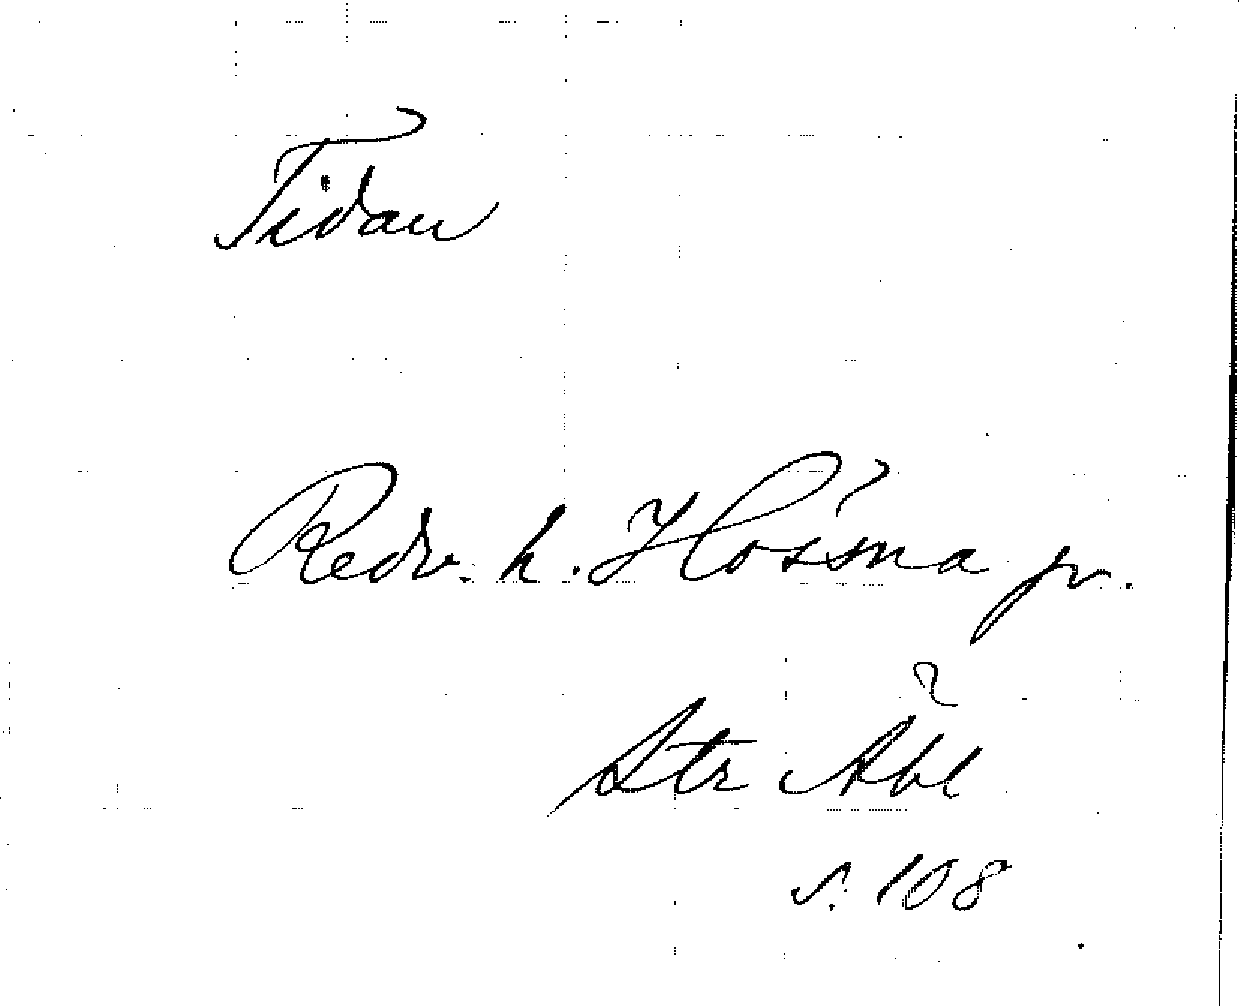 Tidan
Redv. h. Hösna pr.
Str Ábl
s. 108